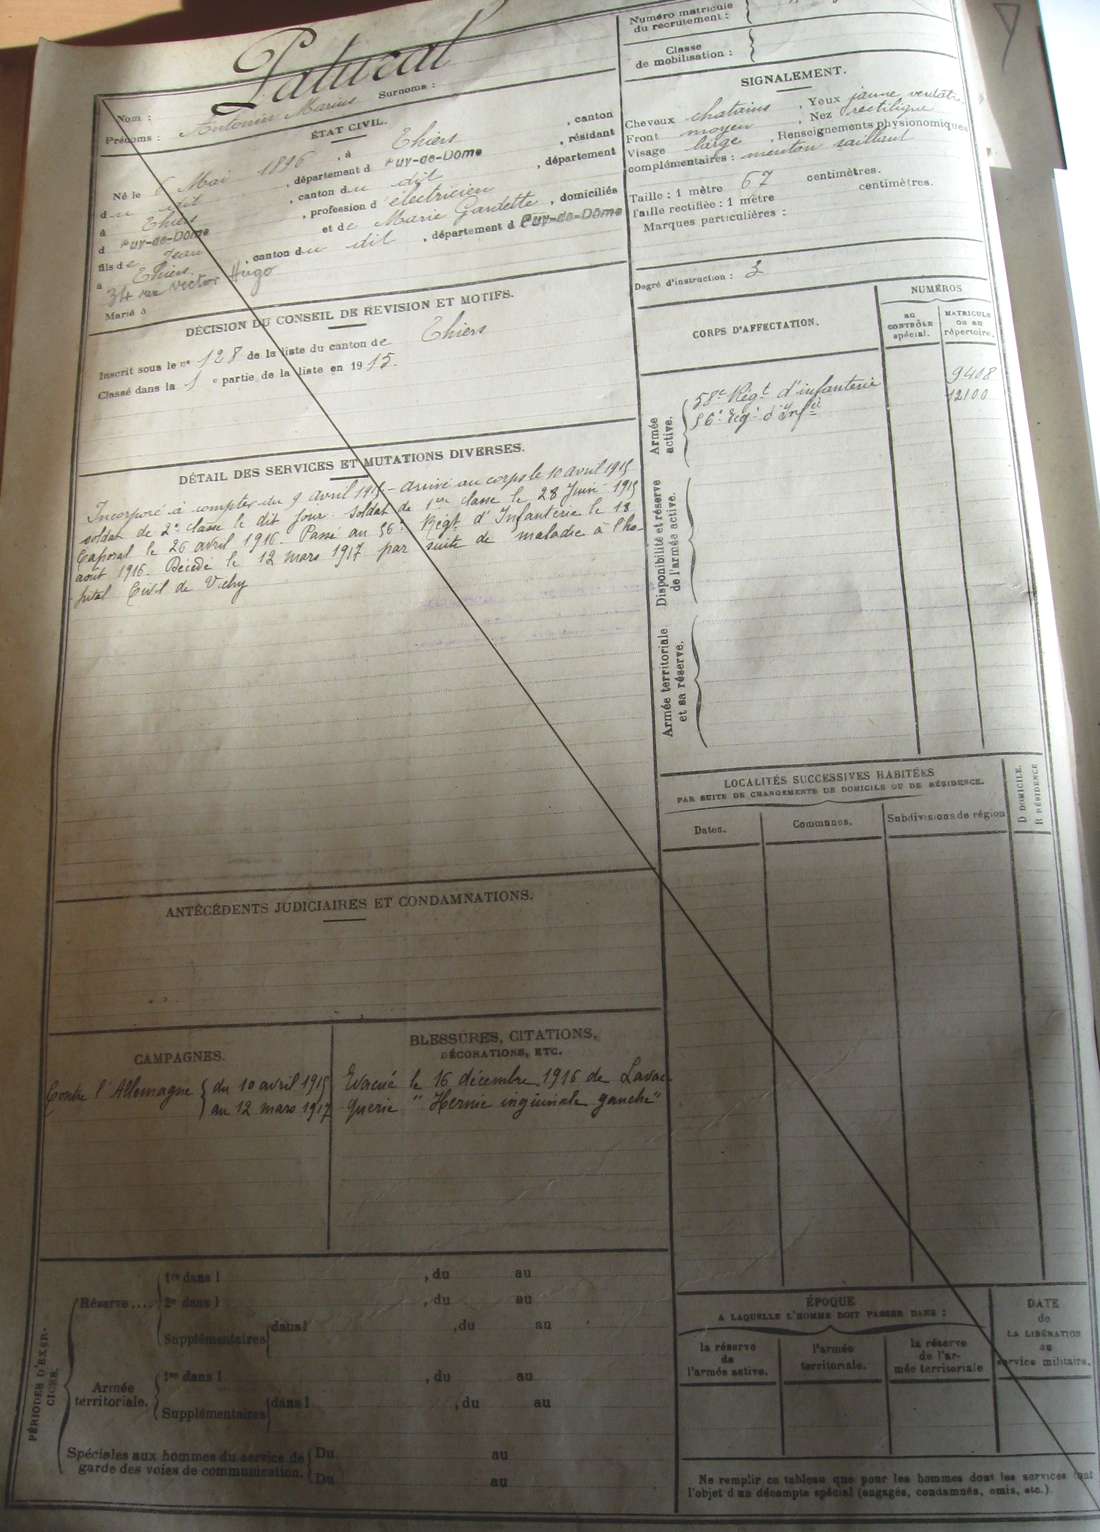 Numéro matricule
du recrutement :
Classe
de mobilisation :
Nom :
Prénoms : Antonin Marius Surnoms :
ÉTAT CIVIL.
Né le 6 Mai 1896, à Thiers, canton
du dit, département d Puy-de-Dôme, résidant
à Thiers, canton du dit, département
d Puy-de-Dôme, profession d'électricien
fils de Jean et de Marie Gardette, domiciliés
à Thiers, canton du dit, département d Puy-de-Dôme
34 rue Victor Hugo
Marié à
DÉCISION DU CONSEIL DE REVISION ET MOTIFS.
Inscrit sous le nº 128 de la liste du canton de Thiers
Classé dans la 1 e partie de la liste en 1915.
DÉTAIL DES SERVICES ET MUTATIONS DIVERSES.
Incorporé à compter du 9 avril 1915 - arrivé au corps le 10 avril 1915
soldat de 2e classe le dit jour. soldat de 1ère classe le 28 Juin 1915
Caporal le 26 avril 1916. Passé au 56e Régt d'Infanterie le 18
août 1916. Décédé le 12 mars 1917 par suite de maladie à l'hô-
pital Civil de Vichy
ANTÉCÉDENTS JUDICIAIRES ET CONDAMNATIONS.
CAMPAGNES.
Contre l'Allemagne { du 10 avril 1915
au 12 mars 1917
BLESSURES, CITATIONS,
DÉCORATIONS, ETC.
Evacué le 16 décembre 1916 de Lavac-
querie " Hernie inguinale gauche"
PÉRIODES D'EXER-
CICES.
Réserve....
1re dans l , du au
2e dans l , du au
Supplémentaires dans l , du au
Armée
territoriale.
1re dans l , du au
Supplémentaires dans l , du au
Spéciales aux hommes du service de
garde des voies de communication.
Du au
Du au
SIGNALEMENT.
Cheveux chatains, Yeux jaune verdâtre
Front moyen, Nez rectiligne
Visage large, Renseignements physionomiques
complémentaires : menton saillant
Taille : 1 mètre 67 centimètres.
Taille rectifiée : 1 mètre centimètres.
Marques particulières :
Degré d'instruction : 3
CORPS D'AFFECTATION.
NUMÉROS
au
CONTRÔLE
spécial.
MATRICULE
ou au
répertoire.
Armée
active.
58e Régt d'infanterie 9408
56e Rég. d'Infie 12100
Disponibilité et réserve
de l'armée active.
Armée territoriale
et sa réserve.
LOCALITÉS SUCCESSIVES HABITÉES
PAR SUITE DE CHANGEMENTS DE DOMICILE OU DE RÉSIDENCE.
Dates.
Communes.
Subdivisions de région
D DOMICILE.
R RÉSIDENCE
ÉPOQUE
A LAQUELLE L'HOMME DOIT PASSER DANS :
la réserve
de
l'armée active.
l'armée
territoriale.
la réserve
de l'ar-
mée territoriale
DATE
de
LA LIBÉRATION
du
service militaire.
Ne remplir ce tableau que pour les hommes dont les services font
l'objet d'un décompte spécial (engagés, condamnés, omis, etc.).